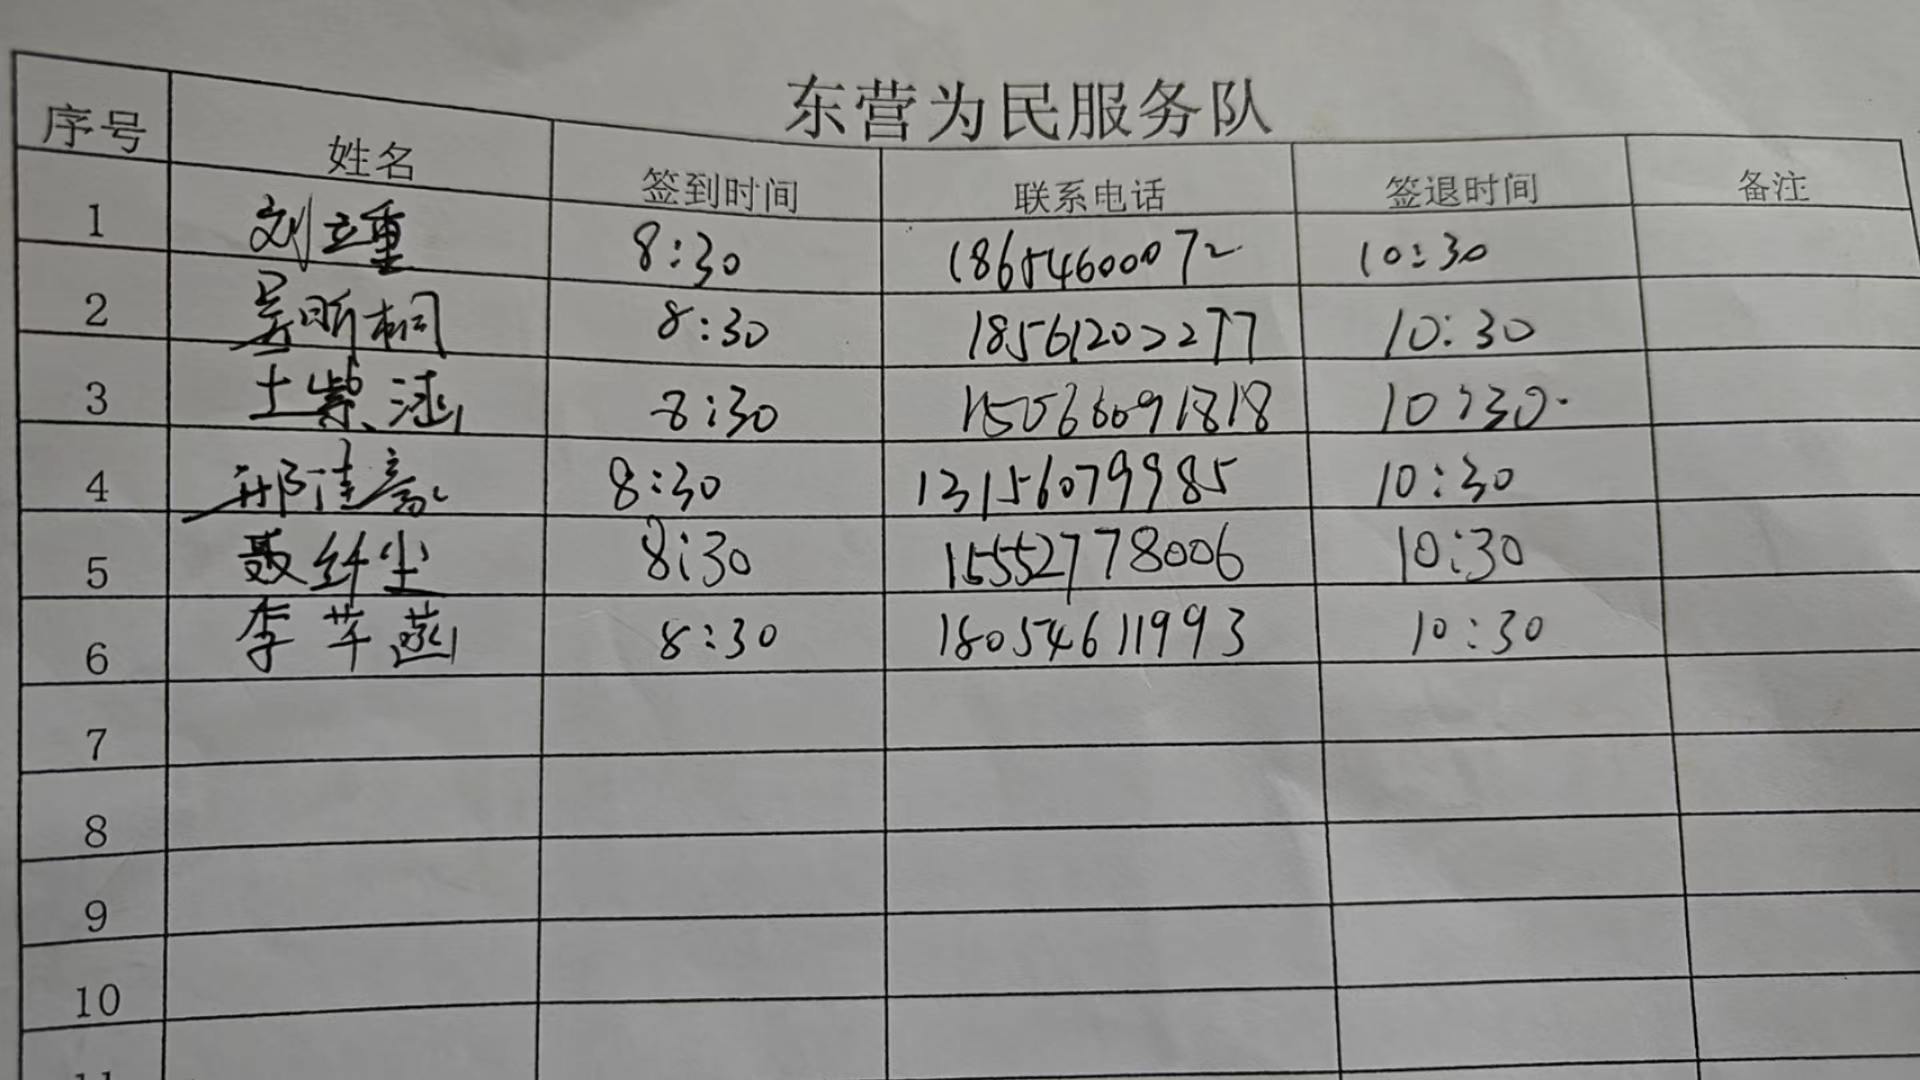 东营为民服务队
序号 姓名 签到时间 联系电话 签退时间 备注
1 刘立重 8:30 18654600072 10:30
2 吴昕桐 8:30 18561202277 10:30
3 王紫涵 8:30 15066091818 10:30
4 邢佳 8:30 13156079985 10:30
5 聂纤尘 8:30 15552778006 10:30
6 李芊菡 8:30 18054611993 10:30
7
8
9
10
11